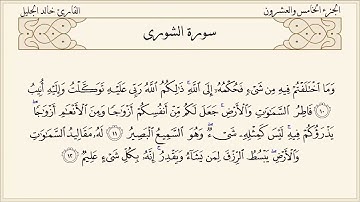 الجزء الخامس والعشرون
القارئ خالد الجليل
سورة الشورى
وَمَا ٱخْتَلَفْتُمْ فِيهِ مِن شَىْءٍ فَحُكْمُهُۥٓ إِلَى ٱللَّهِ ۚ ذَٰلِكُمُ ٱللَّهُ رَبِّى عَلَيْهِ تَوَكَّلْتُ وَإِلَيْهِ أُنِيبُ
١٠ فَاطِرُ ٱلسَّمَٰوَٰتِ وَٱلْأَرْضِ ۚ جَعَلَ لَكُم مِّنْ أَنفُسِكُمْ أَزْوَٰجًا وَمِنَ ٱلْأَنْعَٰمِ أَزْوَٰجًا ۖ
يَذْرَؤُكُمْ فِيهِ ۚ لَيْسَ كَمِثْلِهِۦ شَىْءٌ ۖ وَهُوَ ٱلسَّمِيعُ ٱلْبَصِيرُ ١١ لَهُۥ مَقَالِيدُ ٱلسَّمَٰوَٰتِ
وَٱلْأَرْضِ ۖ يَبْسُطُ ٱلرِّزْقَ لِمَن يَشَآءُ وَيَقْدِرُ ۚ إِنَّهُۥ بِكُلِّ شَىْءٍ عَلِيمٌ ١٢